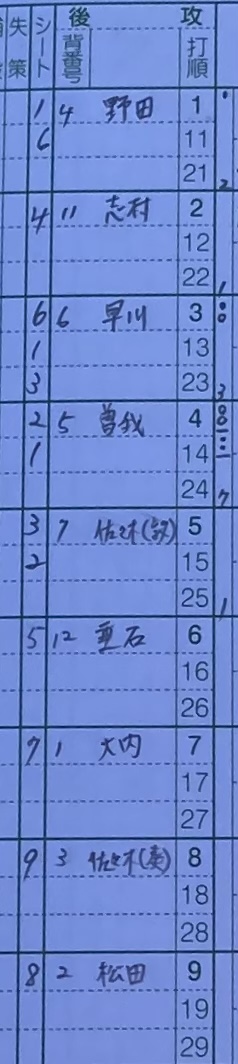 失策 シート 後 背番号 攻 打順
1 4 野田 1
6 11
21 2
4 11 志村 2
12
22 1
6 6 早川 3
1 13
3 23 3
2 5 曽我 4
1 14
24 7
3 7 佐々木( ) 5
2 15
25 1
5 12 重石 6
16
26
7 1 大内 7
17
27
9 3 佐々木( ) 8
18
28
8 2 松田 9
19
29